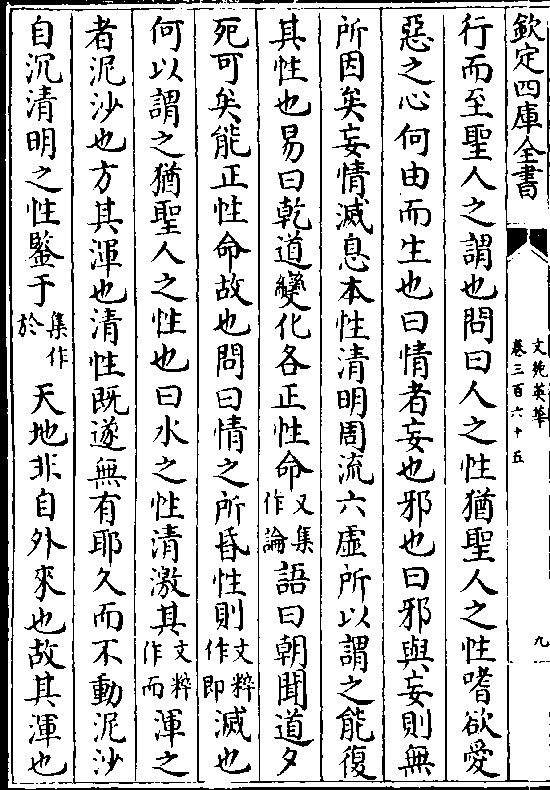 欽定四庫全書
文苑英華
卷三百六十五
九
行而至聖人之謂也問曰人之性猶聖人之性嗜欲愛
惡之心何由而生也曰情者妄也邪也曰邪與妄則無
所因矣妄情滅息本性清明周流六虛所以謂之能復
其性也易曰乾道變化各正性命又集作論語曰朝聞道夕
死可矣能正性命故也問曰情之所昏性則文粹作即滅也
何以謂之猶聖人之性也曰水之性清澈其文粹作而渾之
者泥沙也方其渾也清性既遂無有耶久而不動泥沙
自沉清明之性鑒于集作於天地非自外來也故其渾也